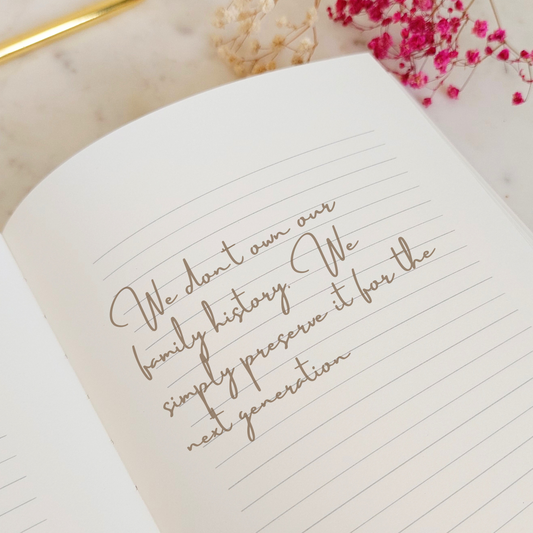 We don't own our
family history. We
simply preserve it for the
next generation